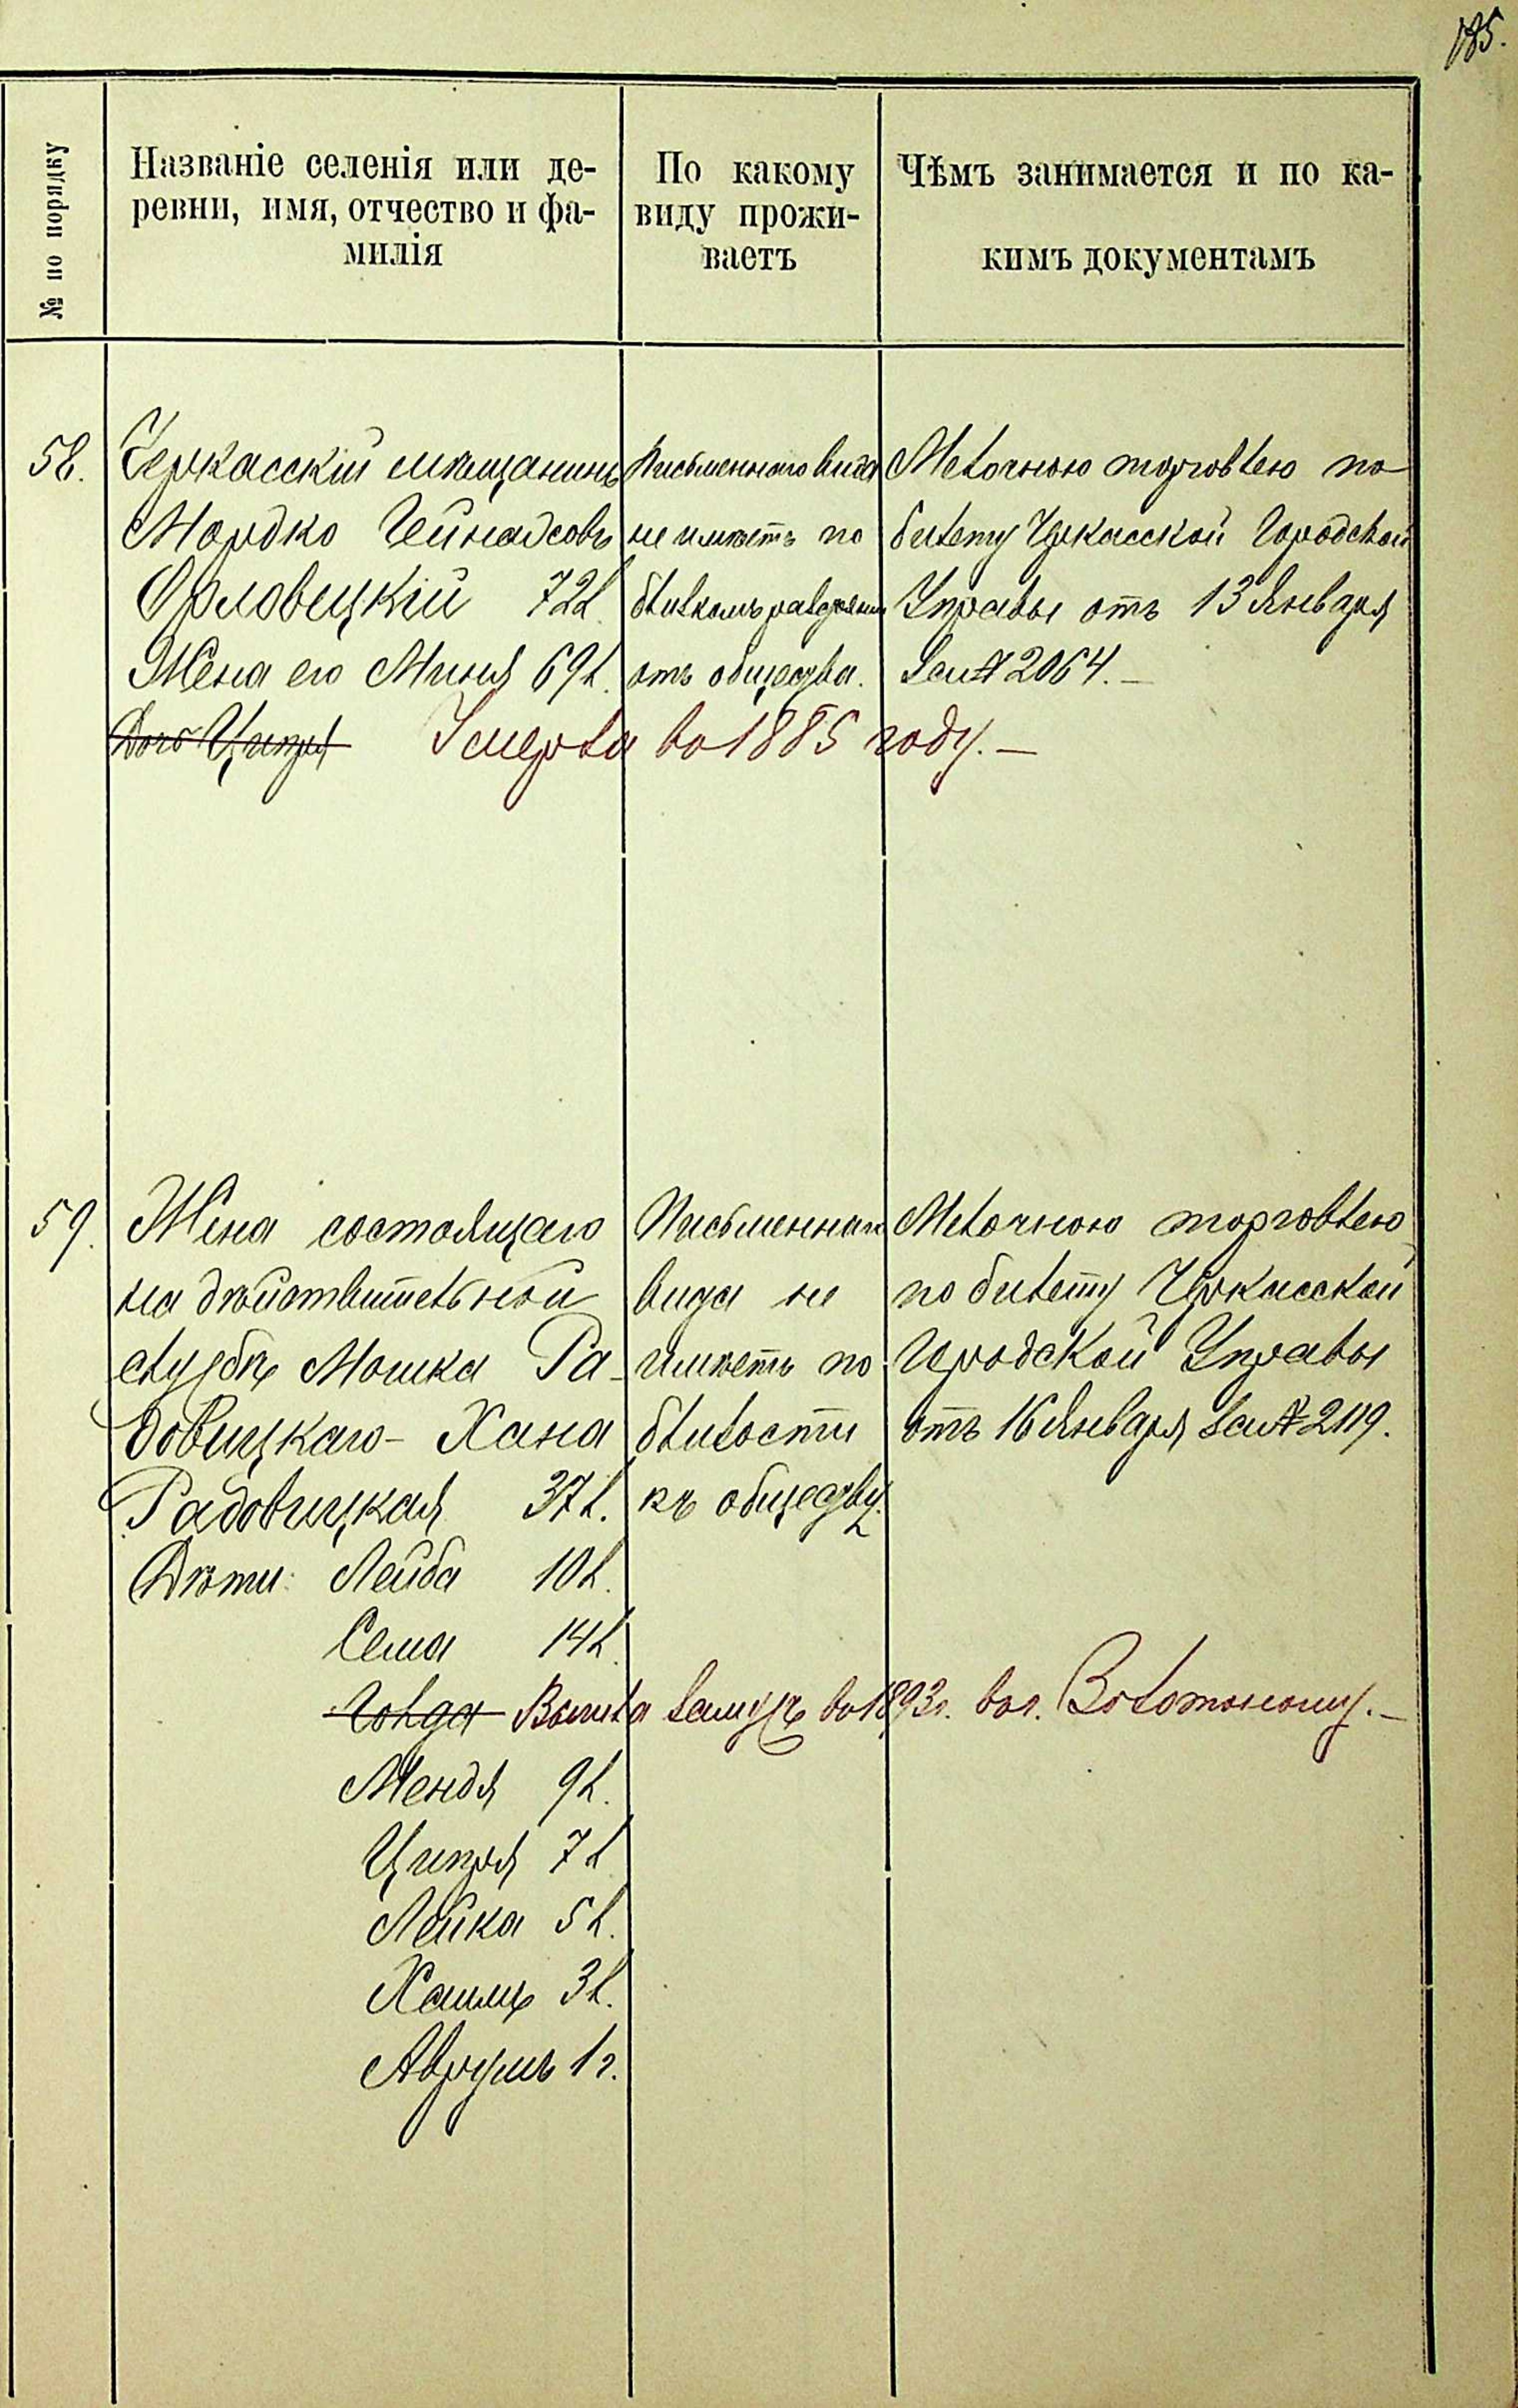 185.
№ по порядку
Названіе селенія или де-
ревни, имя, отчество и фа-
милія
По какому
виду прожи-
ваетъ
Чѣмъ занимается и по ка-
кимъ документамъ
58.
Черкасскій мѣщанинъ
Мордко
Орловецкій 72 л.
Жена его Миня 69 л.
Дочь Ципря Умерла въ 1885 году.—
Письменнаго вида
не имѣетъ по
близкому
отъ общества.
Мелочною торговлею по
билету Черкасской Городской
Управы отъ 13 Января
за № 2064.—
59.
Жена состоящаго
на дѣйствительной
службѣ Мошка Ра-
довицкаго - Хана
Радовицкая 37 л.
Дѣти: Лейба 10 л.
Сема 14 л.
Голда Вышла замужъ въ 1893 г. Золотоношу.—
Мендя 9 л.
Ципря 7 л.
Лейка 5 л.
Хаимъ 3 л.
Аврумъ 1 г.
Письменнаго
вида не
имѣетъ по
близости
къ обществу.
Мелочною торговлею
по билету Черкасской
Городской Управы
отъ 16 Января за № 2119.